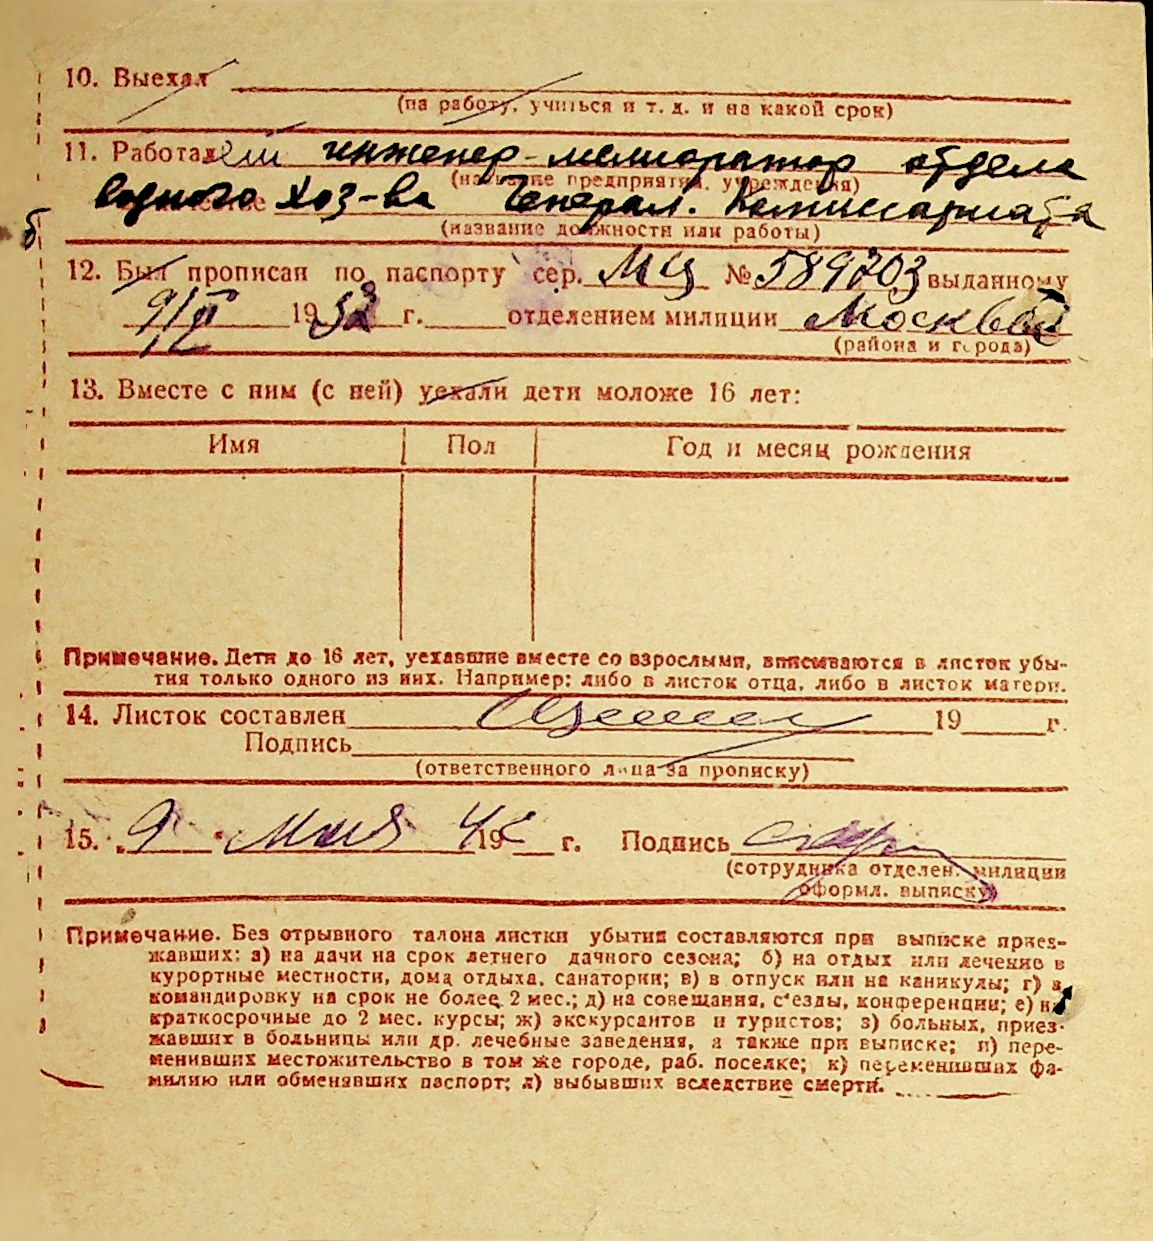 10. Выехал
(на работу, учиться и т. д. и на какой срок)
11. Работал инженер-мелиоратор отдела
(название предприятия, учреждения)
водного хоз-ва Генерал. Комиссариата
(название должности или работы)
12. Был прописан по паспорту сер. МЦ № 589703 выданному
9/II 19 г. отделением милиции Москвы
(района и города)
13. Вместе с ним (с ней) уехали дети моложе 16 лет:
Имя Пол Год и месяц рождения
Примечание. Дети до 16 лет, уехавшие вместе со взрослыми, вписываются в листок убы-
тия только одного из них. Например: либо в листок отца, либо в листок матери.
14. Листок составлен 19 г.
Подпись
(ответственного лица за прописку)
15. „9“ Мая 19 г. Подпись
(сотрудника отделен. милиции
оформл. выписку)
Примечание. Без отрывного талона листки убытия составляются при выписке приез-
жавших: а) на дачи на срок летнего дачного сезона; б) на отдых или лечение в
курортные местности, дома отдыха, санатории; в) в отпуск или на каникулы; г) в
командировку на срок не более 2 мес.; д) на совещания, с'езды, конференции; е) на
краткосрочные до 2 мес. курсы; ж) экскурсантов и туристов; з) больных, приез-
жавших в больницы или др. лечебные заведения, а также при выписке; и) пере-
менивших местожительство в том же городе, раб. поселке; к) переменивших фа-
милию или обменявших паспорт; л) выбывших вследствие смерти.